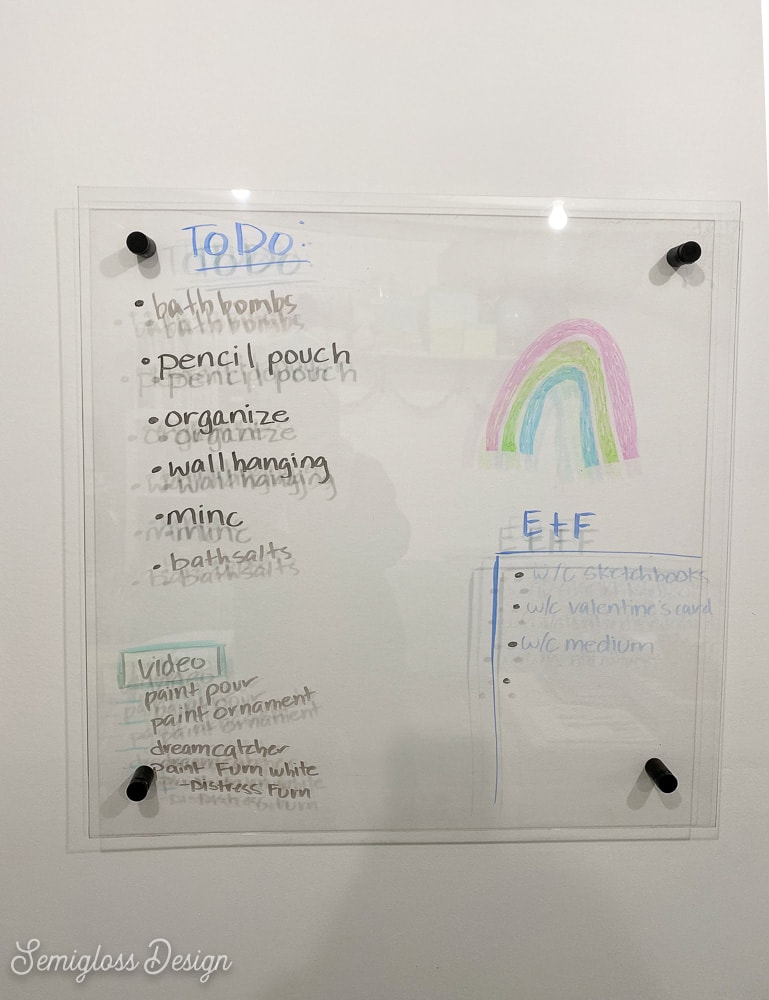 ToDo:
• bath bombs
• pencil pouch
• organize
• wall hanging
• minc
• bath salts
Video
paint pour
paint ornament
dreamcatcher
Paint Furn white
- Distress Furn
E + F
• w/c sketchbooks
• w/c valentine's card
• w/c medium
•
Semigloss Design